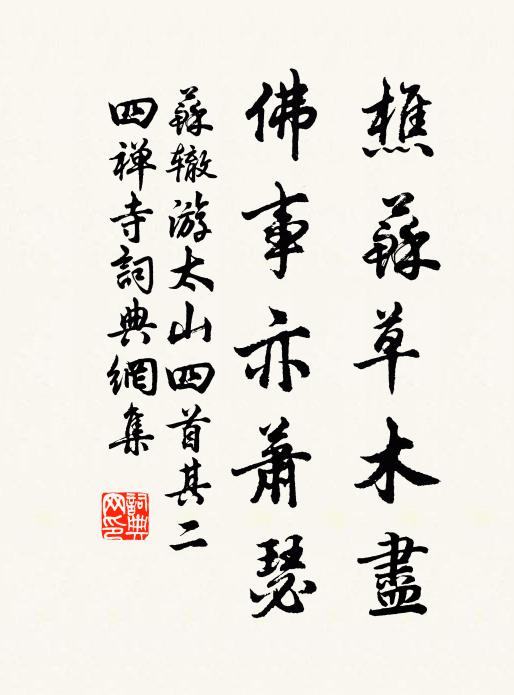 樵蘇草木盡
佛事亦蕭瑟
蘇辙游太山四首其二
四禅寺詞典網集
詞典网印